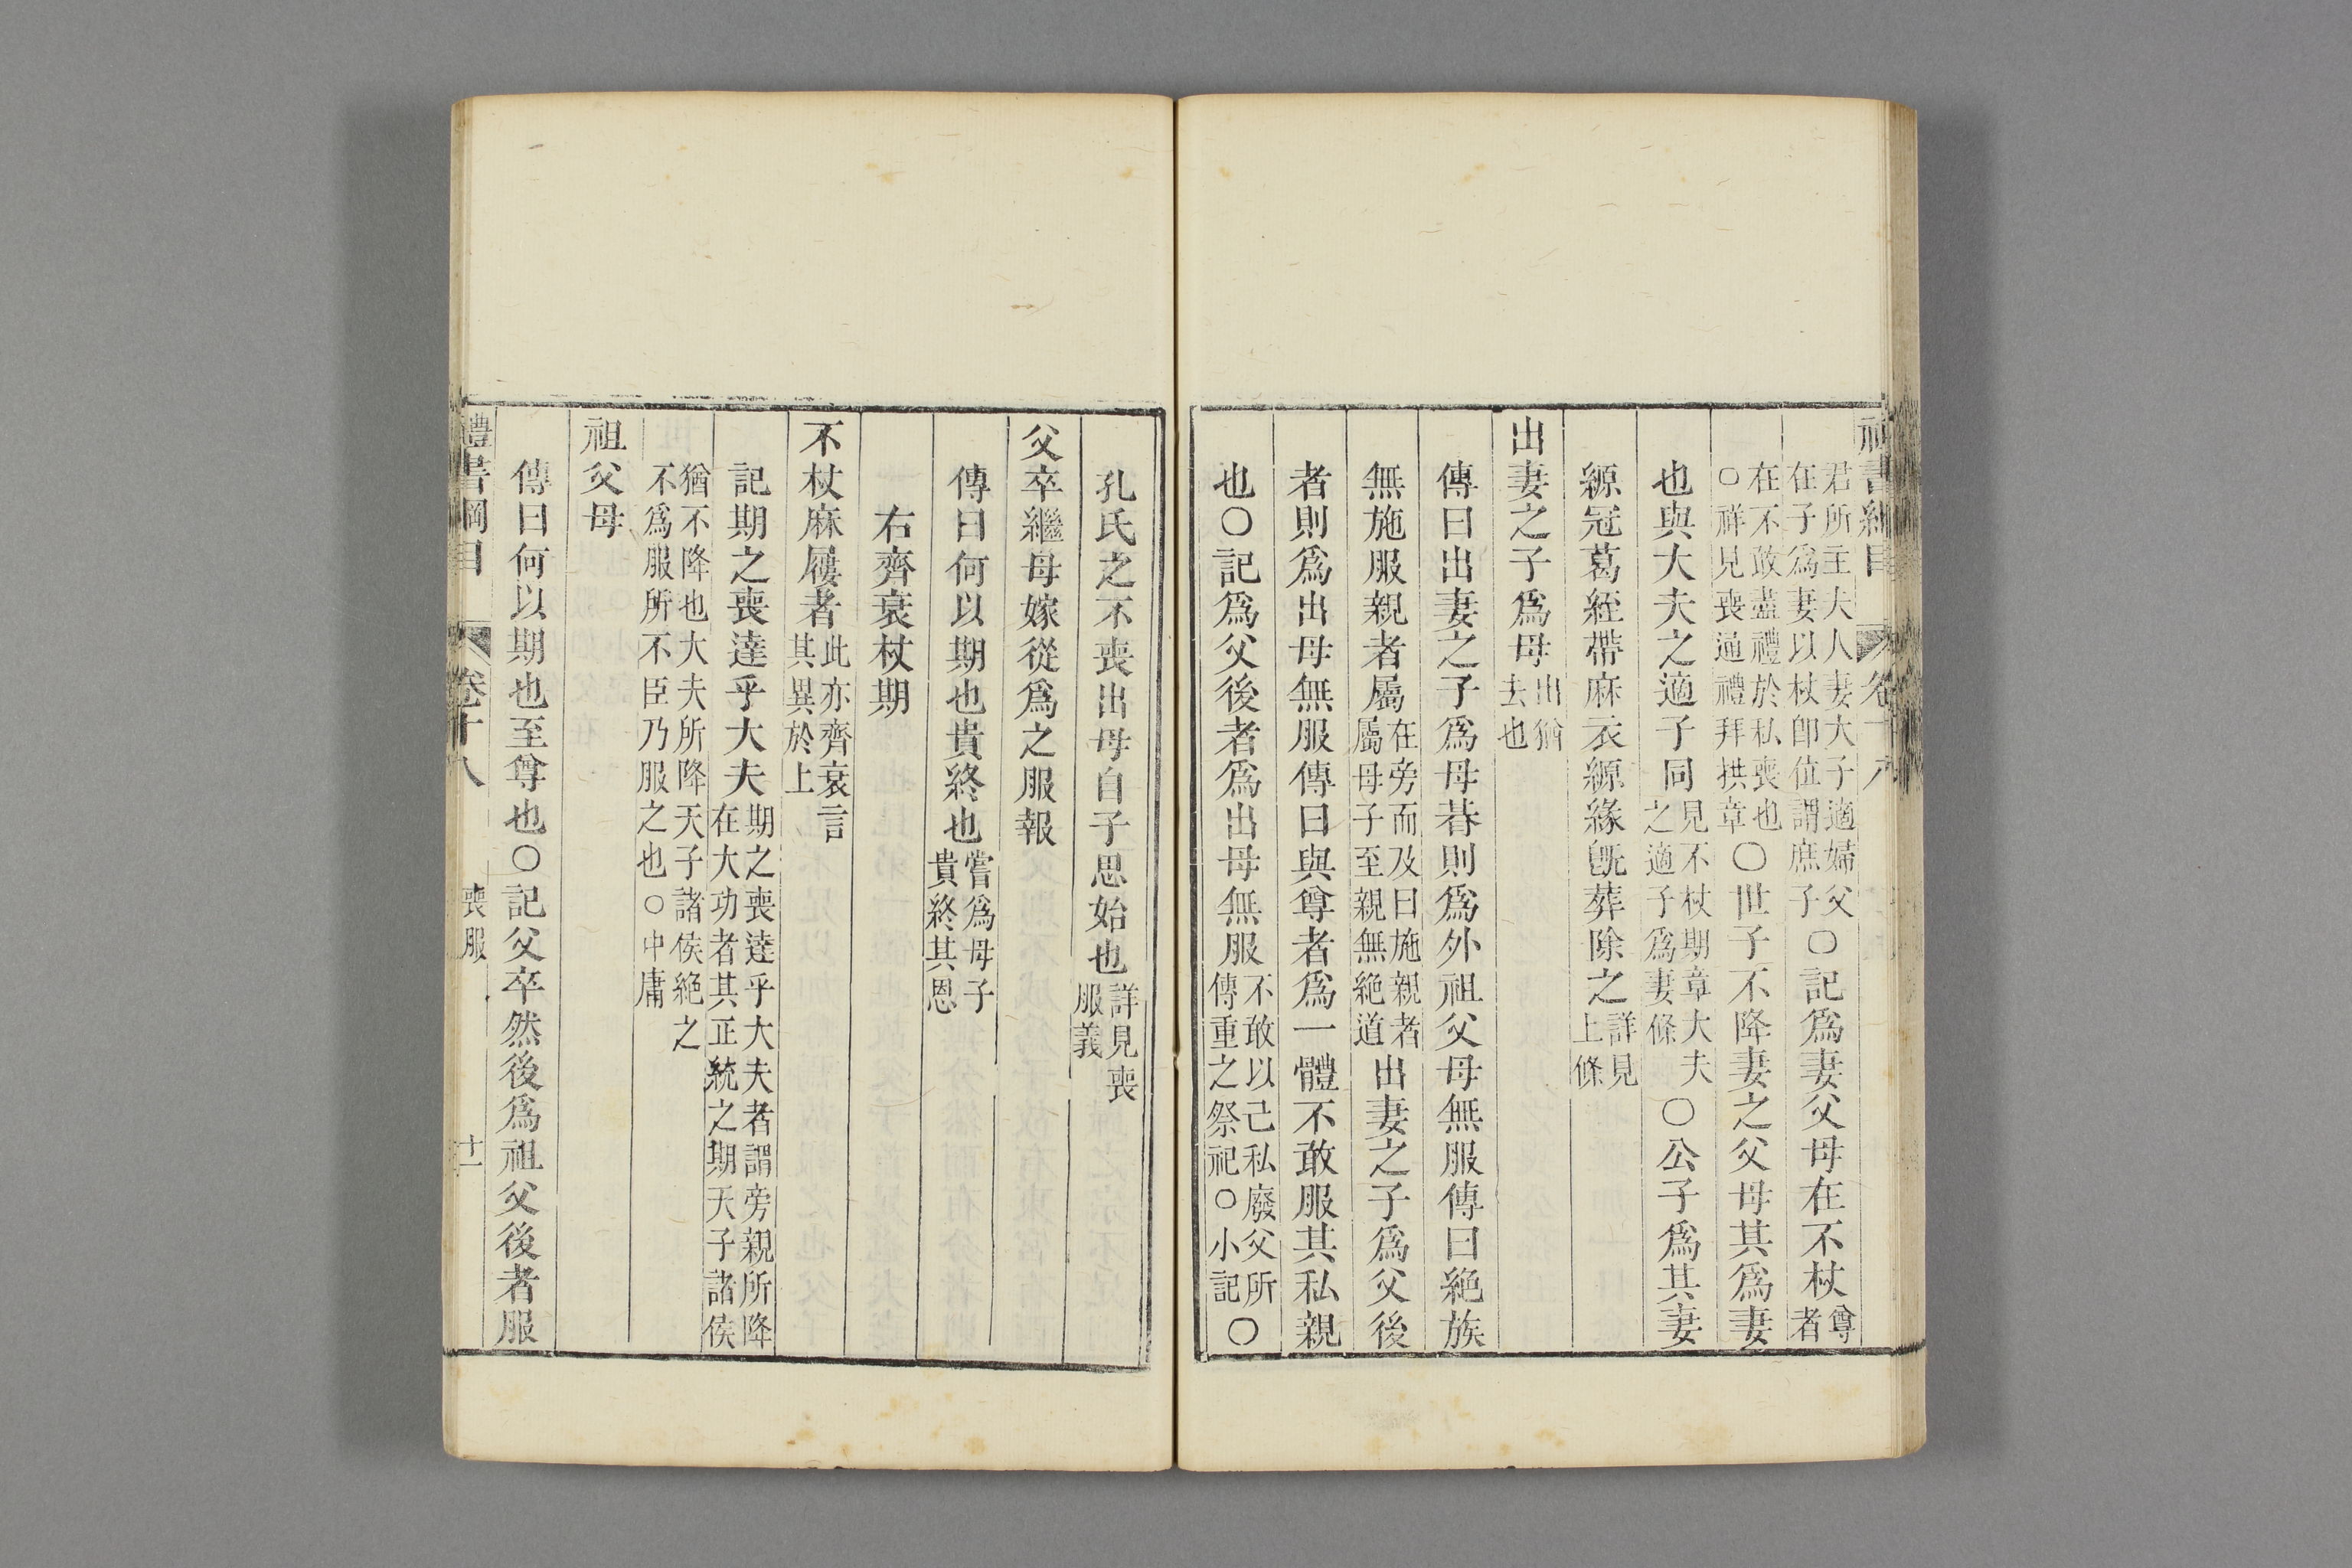 君所主夫人妻大子適婦父在子爲妻以杖卽位謂庶子〇記爲妻父母在不杖尊者
在不敢盡禮於私喪也○祥見喪通禮拜拱章〇世子不降妻之父母其爲妻
也與大夫之適子同見不杖期章大夫之適子爲妻條〇公子爲其妻
縓冠葛絰帶麻衣縓緣旣葬除之詳見上條
出妻之子爲母出猶去也
傳曰出妻之子爲母朞則爲外祖父母無服傳曰絶族
無施服親者屬在旁而及曰施親者屬母子至親無絶道出妻之子爲父後
者則爲出母無服傳曰與尊者爲一體不敢服其私親
也〇記爲父後者爲出母無服不敢以己私廢父所傳重之祭祀○小記〇
孔氏之不喪出母自子思始也詳見喪服義
父卒繼母嫁從爲之服報
傳曰何以期也貴終也嘗爲母子貴終其恩
右齊衰杖期
不杖麻屨者此亦齊衰言其異於上
記期之喪達乎大夫期之喪達乎大夫者謂旁親所降在大功者其正統之期天子諸侯
猶不降也大夫所降天子諸侯絶之不爲服所不臣乃服之也○中庸
祖父母
傳曰何以期也至尊也〇記父卒然後爲祖父後者服
禮書綱目 卷十八 喪服 十一